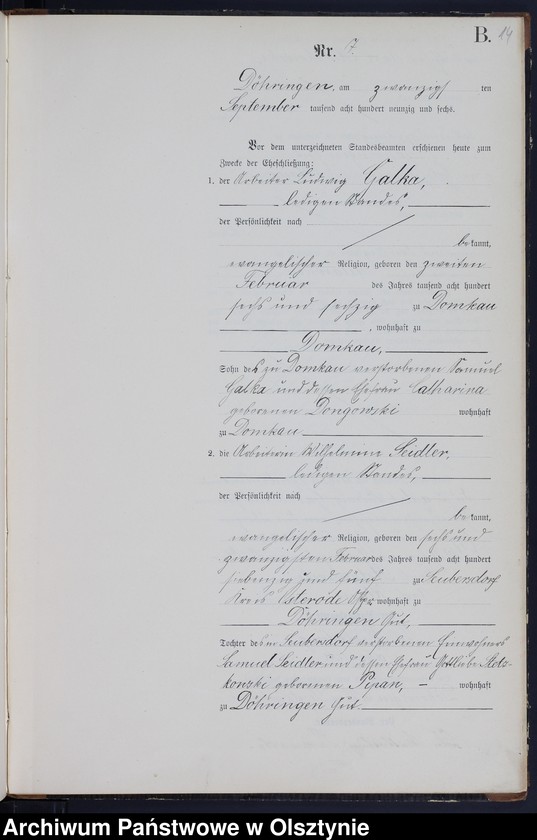 B. 84
Nr. 7.
Döhringen, am zwanzigsten
September tausend acht hundert neunzig und sechs.
Vor dem unterzeichneten Standesbeamten erschienen heute zum
Zwecke der Eheschließung:
1. der Arbeiter Ludwig Galka,
ledigen Standes,
der Persönlichkeit nach
bekannt,
evangelischer Religion, geboren den zweiten
Februar des Jahres tausend acht hundert
sechs und sechzig zu Domkau
, wohnhaft zu
Domkau,
Sohn des zu Domkau verstorbenen Samuel
Galka und dessen Ehefrau Catharina
geborenen Dongowski wohnhaft
zu Domkau
2. die Arbeiterin Wilhelmine Seidler,
ledigen Standes,
der Persönlichkeit nach
bekannt,
evangelischer Religion, geboren den sechs und
zwanzigsten Februar des Jahres tausend acht hundert
siebenzig und fünf zu Seubersdorf
Kreis Osterode Ostpr wohnhaft zu
Döhringen Gut,
Tochter des in Seubersdorf verstorbenen Einwohners
Samuel Seidler und dessen Ehefrau Gottliebe
geborenen Pipan, – wohnhaft
zu Döhringen Gut
Archiwum Państwowe w Olsztynie